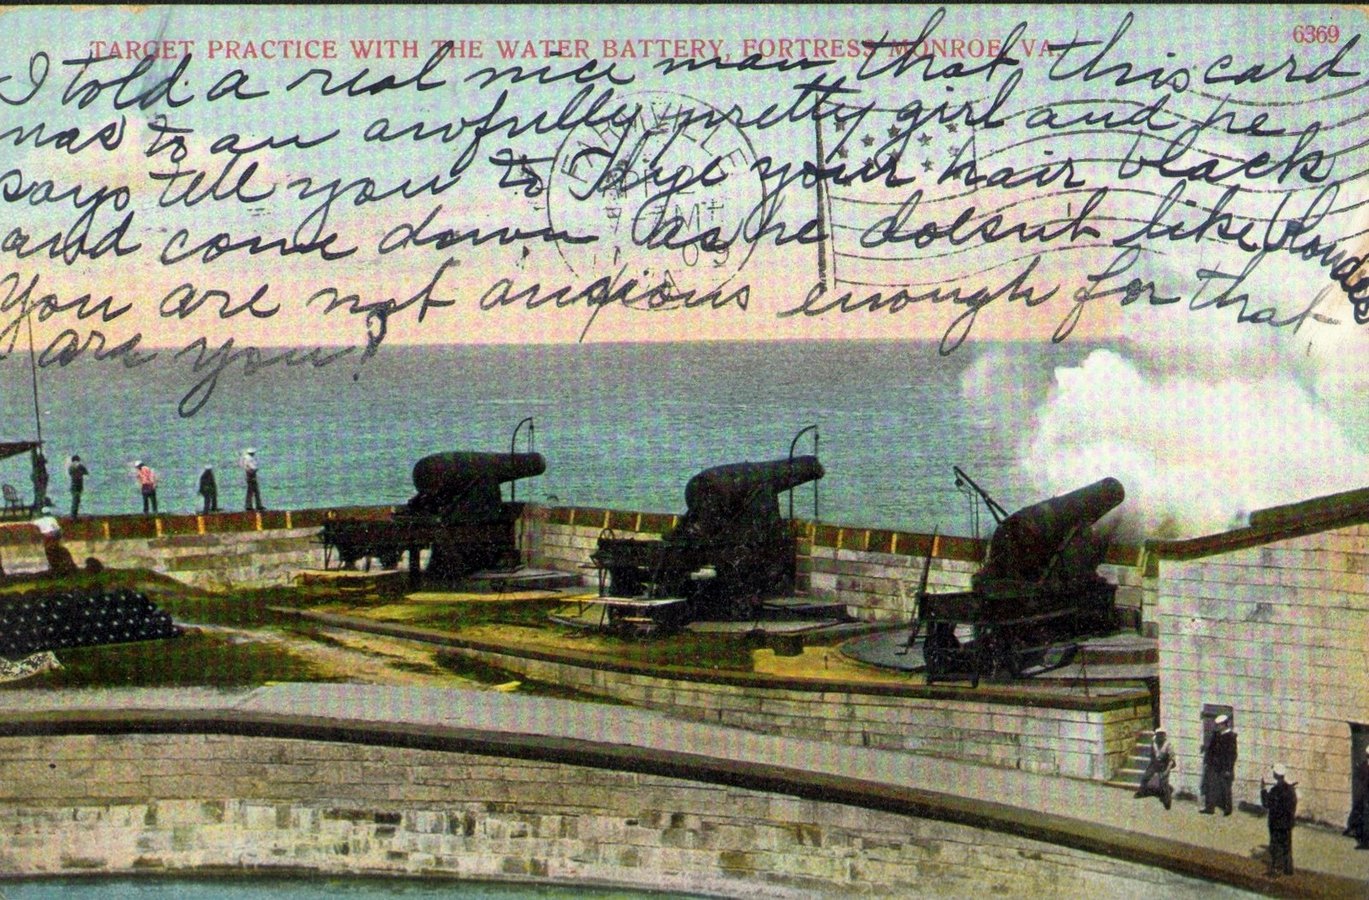 TARGET PRACTICE WITH THE WATER BATTERY, FORTRESS MONROE, VA.
6369
I told a real nice man that this card
was to an awfully pretty girl and he
says tell you to dye your hair black
and come down as he doesnt like blondes
You are not anxious enough for that
are you?
09